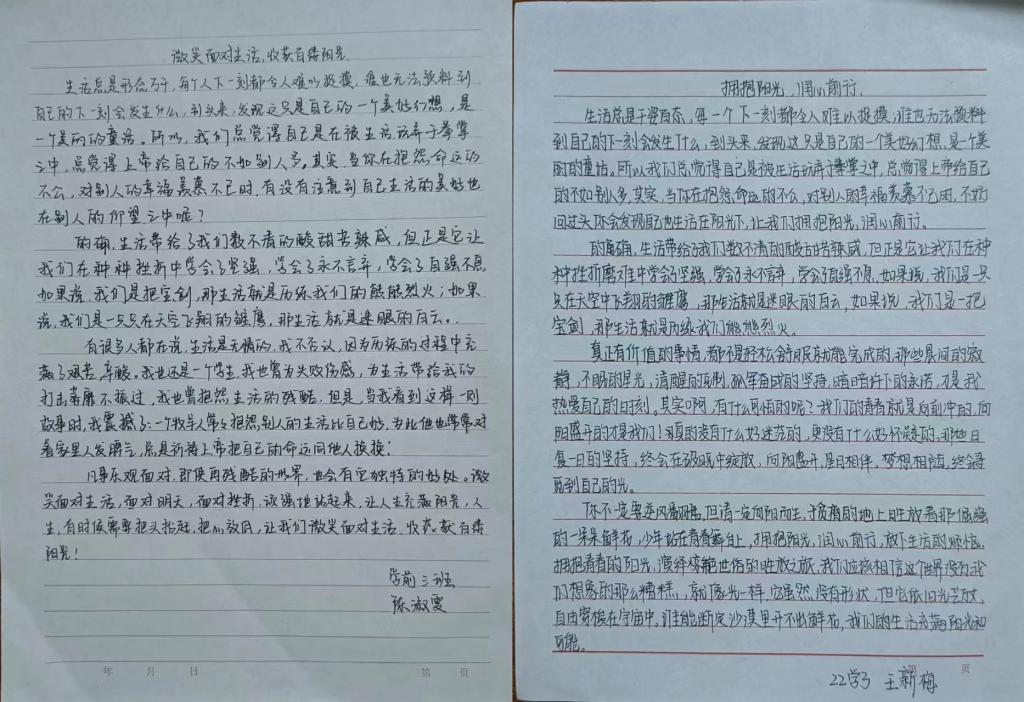 微笑面对生活,收获自得阳光
生活总是形态万千,每个人下一刻都令人难以捉摸,谁也无法预料到
自己的下一刻会发生什么,到头来,发现这只是自己的一个美好幻想,是
一个美丽的童话。所以,我们总觉得自己是在被生活玩弄于拳掌
之中,总觉得上帝给自己的不如别人多。其实,当你在抱怨命运的
不公,对别人的幸福羡慕不已时,有没有注意到自己生活的美好也
在别人的仰望之中呢?
的确,生活带给了我们数不清的酸甜苦辣咸,但正是它让
我们在种种挫折中学会了坚强,学会了永不言弃,学会了自强不息,
如果说,我们是把宝剑,那生活就是历练我们的熊熊烈火;如果
说,我们是一只只在天空飞翔的雄鹰,那生活就是迷眼的白云。
有很多人都在说,生活是无情的,我不否认,因为历练的过程中充
满了艰苦,辛酸。我也还是一个学生,我也曾为失败伤感,为生活带给我的
打击萎靡不振过,我也曾抱怨生活的残酷,但是,当我看到这样一则
故事时,我震撼了:一个牧羊人常常抱怨别人的生活比自己好,为此他也常常对
着家里人发脾气,总是祈祷上帝把自己的命运同他人换换!
凡事乐观面对,即使再残酷的世界,也会有它独特的好处。微
笑面对生活,面对明天,面对挫折,该强壮地站起来,让人生充满阳光,人
生,有时候需要把头抬起,把心放低,让我们微笑面对生活,收获自得
阳光!
学前三班
陈淑雯
年 月 日 第 页
拥抱阳光,润心前行
生活总是千姿百态,每一个下一刻都令人难以捉摸,谁也无法预料
到自己的下一刻会发生什么,到头来,发现这只是自己的一个美好幻想,是一个美
丽的童话。所以我们总觉得自己是被生活玩弄于拳掌之中,总觉得上帝给自己
的不如别人多,其实,当你在抱怨命运的不公,对别人的幸福羡慕不已时,不妨
回过头你会发现自己也生活在阳光下,让我们拥抱阳光,润心前行。
的确,生活带给了我们数不清的酸甜苦辣咸,但正是它让我们在种
种挫折磨难中学会了坚强,学会了永不言弃,学会了自强不息,如果说,我们是一只
只在天空中飞翔的雄鹰,那生活就是迷眼的白云,如果说,我们是一把
宝剑,那生活就是历练我们熊熊烈火。
真正有价值的事情,都不是轻松舒服就能完成的,那些晨间的寂
静,不眠的星光,清醒的克制,孤军奋战的坚持,暗暗许下的承诺,才是我
热爱自己的时刻。其实啊,有什么可怕的呢?我们的青春就是向前冲的,向
阳盛开的才是我们!真的没有什么好迷茫的,更没有什么好怀疑的,那些日
复一日的坚持,终会在微光中绽放,向阳盛开,星日相伴,梦想相随,终会寻
到自己的光。
你不一定要逆风翻盘,但请一定向阳而生,于贫瘠的地上盛放着那倔强
的一朵朵鲜花,少年站在青春舞台上,拥抱阳光,润心前行,放下生活的烦恼,
拥抱青春的阳光,演绎的盛放之旅。我们应该相信这个世界没有我
们想象的那么糟糕,就像光一样,它虽然没有形状,但它依旧光芒万丈,
自由穿梭在宇宙中,谁能断定沙漠里开不出鲜花,我们的生活充满阳光和
可能。
第 页
22学3 王新梅